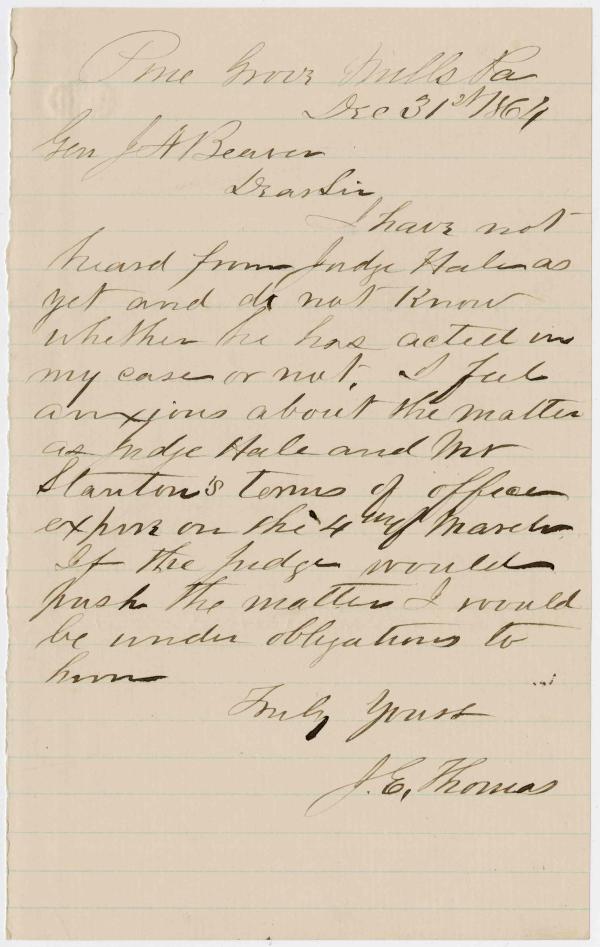 Pine Grove Mills Pa
Dec 31st 1864
Gen J A Beaver
Dear Sir
I have not
heard from Judge Hale as
yet and do not Know
whether he has acted in
my case or not. I feel
anxious about the matter
as Judge Hale and Mr
Stanton's terms of office
expire on the 4th of March
If the judge would
push the matter I would
be under obligations to
him
Truly Yours
J. E. Thomas